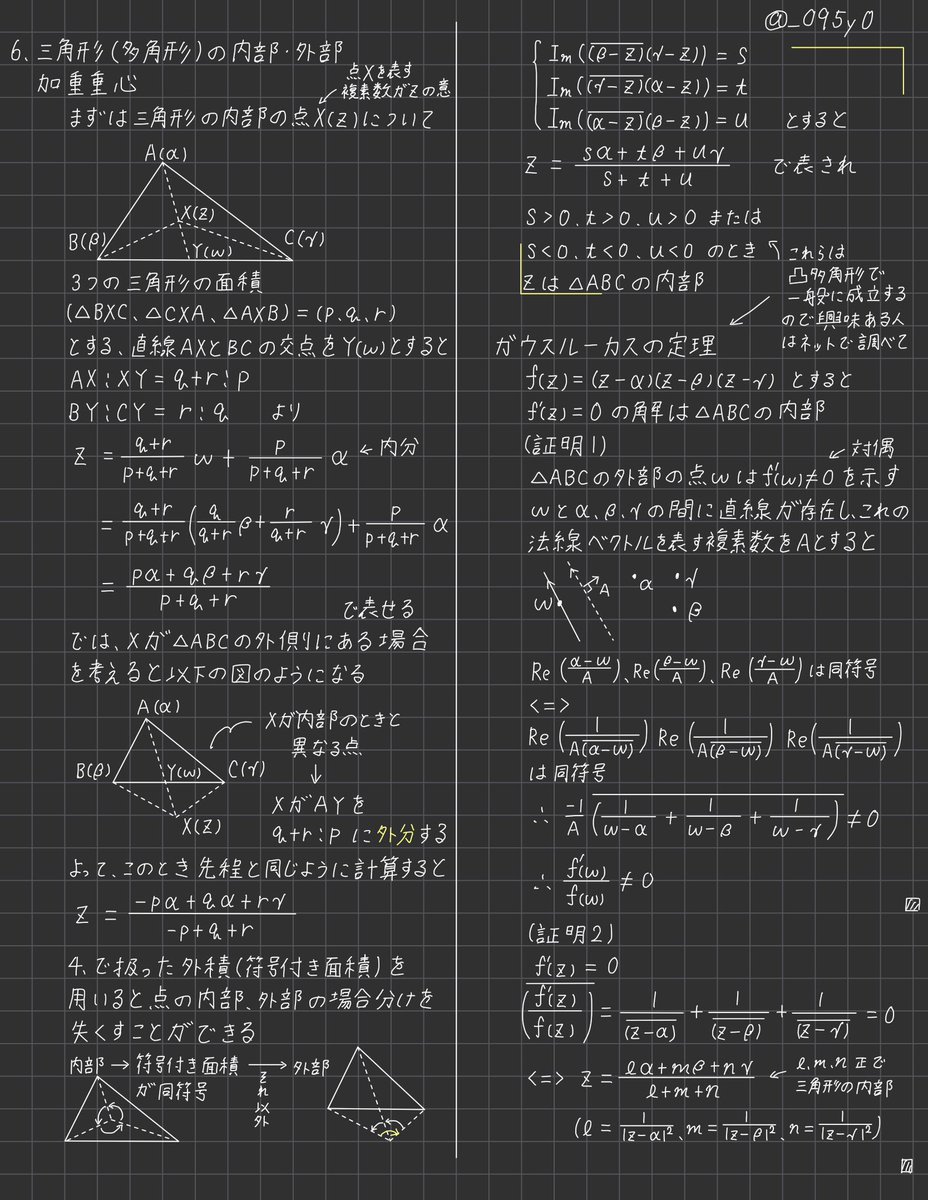 @_095y0
6、三角形(多角形)の内部・外部
加重重心
点Xを表す
複素数がzの意
まずは三角形の内部の点X(z)について
A(α)
X(z)
B(β)
Y(w)
C(γ)
3つの三角形の面積
(△BXC、△CXA、△AXB)=(p、q、r)
とする、直線AXとBCの交点をY(w)とすると
AX:XY=q+r:p
BY:CY=r:q より
z = \frac{q+r}{p+q+r} w + \frac{p}{p+q+r} α ←内分
= \frac{q+r}{p+q+r} ( \frac{q}{q+r} β + \frac{r}{q+r} γ ) + \frac{p}{p+q+r} α
= \frac{pα+qβ+rγ}{p+q+r}
で表せる
では、Xが△ABCの外側にある場合
を考えると以下の図のようになる
A(α)
B(β)
Y(w)
C(γ)
X(z)
Xが内部のときと
異なる点
↓
XがAYを
q+r:pに外分する
よって、このとき先程と同じように計算すると
z = \frac{-pα+qα+rγ}{-p+q+r}
4、で扱った外積(符号付き面積)を
用いると点の内部、外部の場合分けを
失くすことができる
内部→符号付き面積
が同符号
それ以外
→外部
Im(\overline{(β-z)}(γ-z)) = s
Im(\overline{(γ-z)}(α-z)) = t
Im(\overline{(α-z)}(β-z)) = u とすると
z = \frac{sα+tβ+uγ}{s+t+u} で表され
s>0、t>0、u>0 または
s<0、t<0、u<0 のとき
zは△ABCの内部
これらは
凸多角形で
一般に成立する
ので興味ある人
はネットで調べて
ガウスルーカスの定理
f(z)=(z-α)(z-β)(z-γ) とすると
f'(z)=0 の解は△ABCの内部
(証明1)
←対偶
△ABCの外部の点wはf'(w)≠0を示す
wとα、β、γの間に直線が存在し、これの
法線ベクトルを表す複素数をAとすると
w A ・α ・γ
・β
Re(\frac{α-w}{A})、Re(\frac{β-w}{A})、Re(\frac{γ-w}{A})は同符号
<=>
Re(\frac{1}{A\overline{(α-w)}}) Re(\frac{1}{A\overline{(β-w)}}) Re(\frac{1}{A\overline{(γ-w)}})
は同符号
∴ \frac{-1}{A} \overline{( \frac{1}{w-α} + \frac{1}{w-β} + \frac{1}{w-γ} )} ≠0
∴ \frac{f'(w)}{f(w)} ≠0
(証明2)
f'(z)=0
\overline{( \frac{f'(z)}{f(z)} )} = \frac{1}{\overline{(z-α)}} + \frac{1}{\overline{(z-β)}} + \frac{1}{\overline{(z-γ)}} = 0
<=> z = \frac{ℓα+mβ+nγ}{ℓ+m+n}
← ℓ、m、n 正で
三角形の内部
(ℓ = \frac{1}{|z-α|^2}、m = \frac{1}{|z-β|^2}、n = \frac{1}{|z-γ|^2})